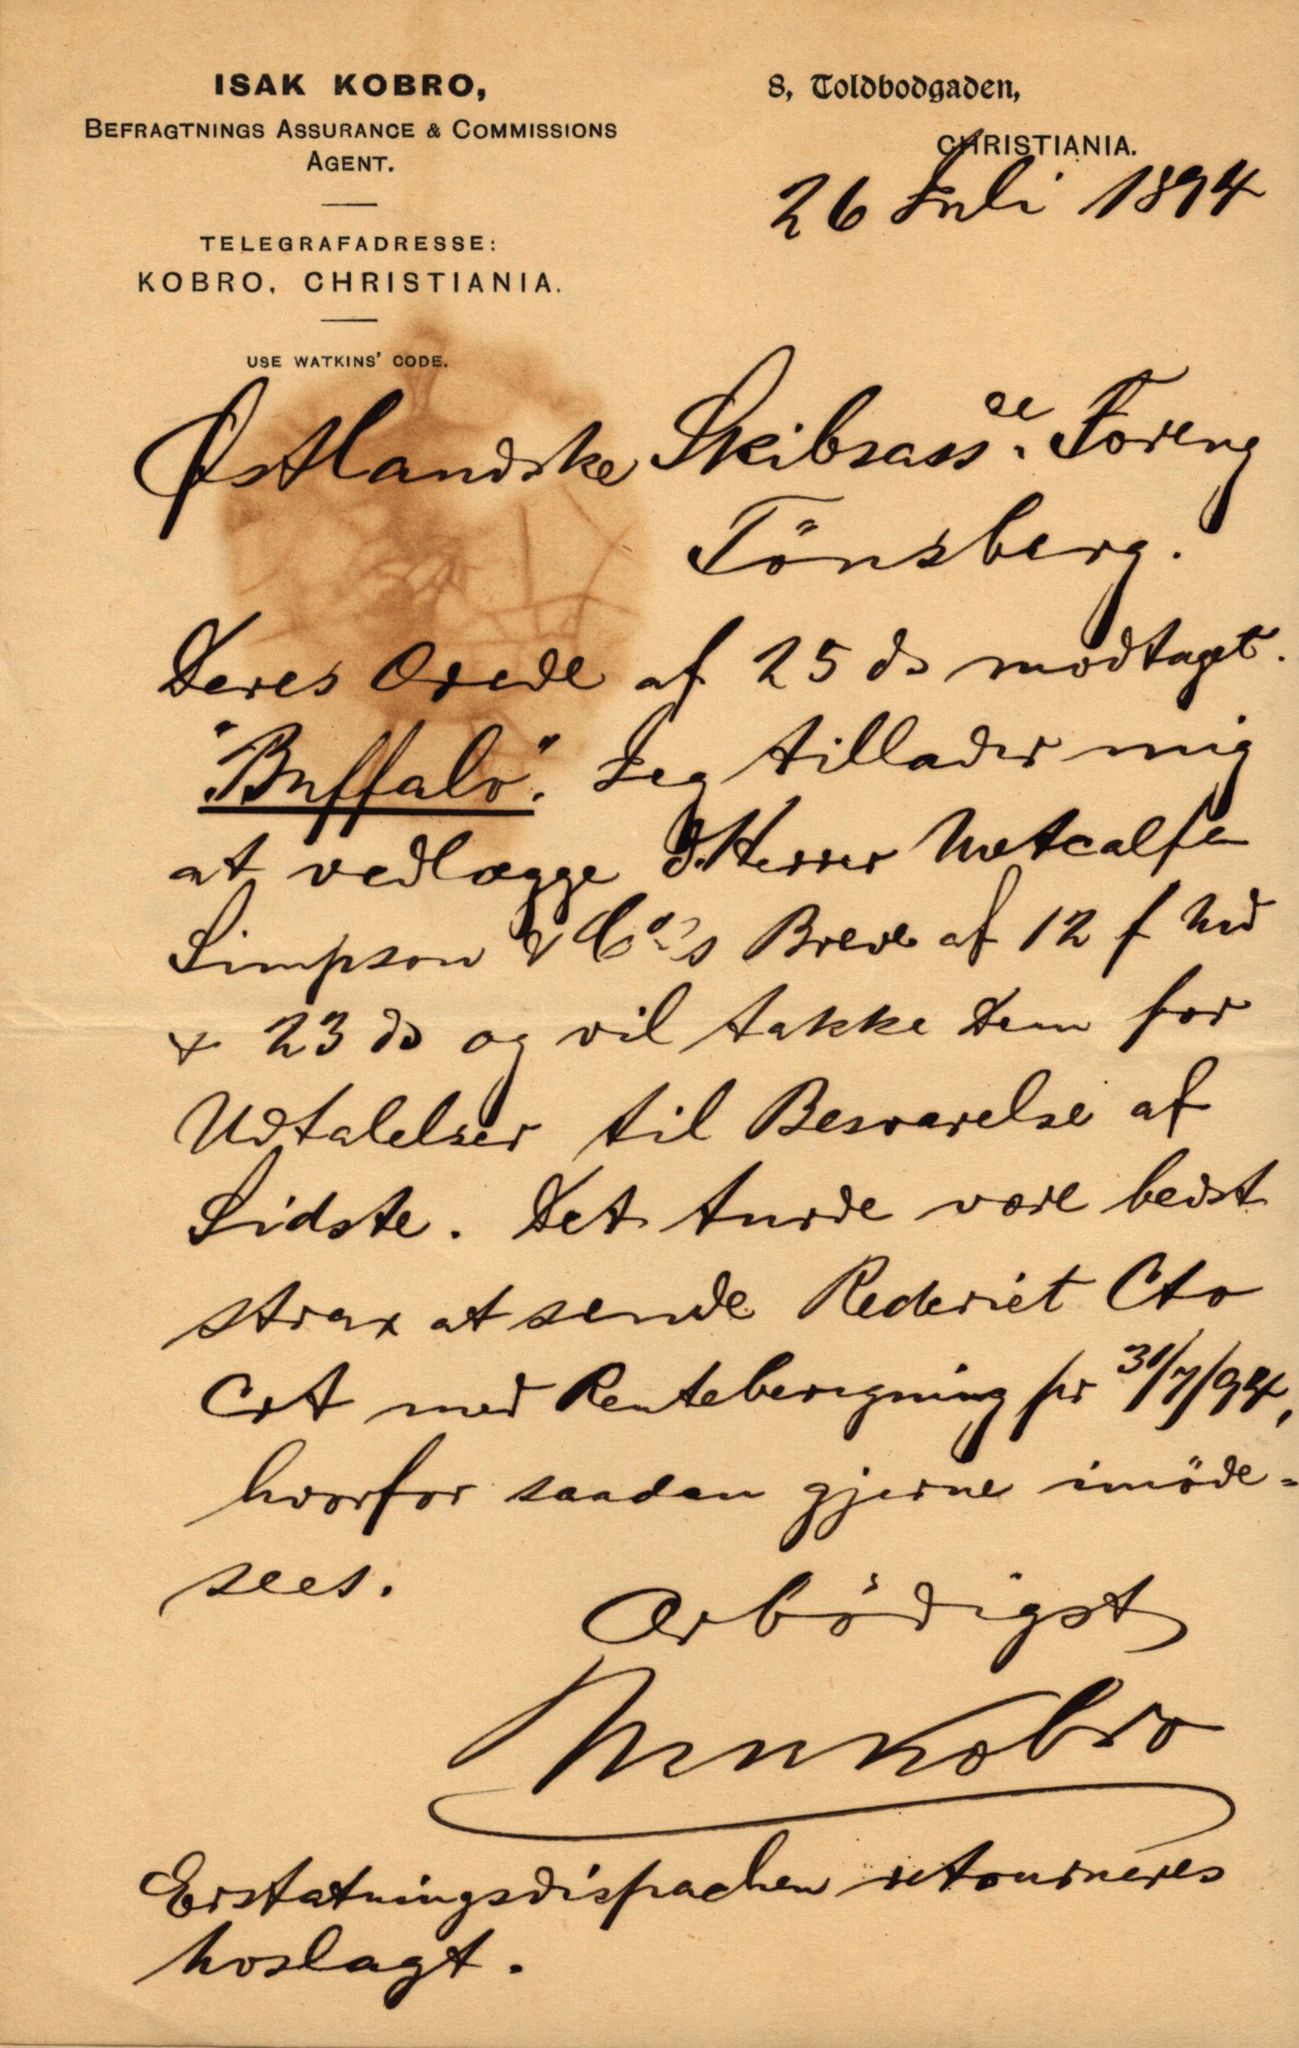 ISAK KOBRO,
BEFRAGTNINGS ASSURANCE & COMMISSIONS
AGENT.
TELEGRAFADRESSE:
KOBRO, CHRISTIANIA.
USE WATKINS' CODE.
8, Toldbodgaden,
CHRISTIANIA.
26 Juli 1894
Østlandske Skibsassce Foreng
Tönsberg.
Deres Ærede af 25 ds modtaget.
"Buffalo". Jeg tillader mig
at vedlægge d'Herrer Metcalfe
Simpson & Co's Breve af 12 f Md
& 23 ds og vil takke Dem for
Udtalelser til Besvarelse af
Sidste. Det turde være bedst
strax at sende Rederiet Cto
Crt med Renteberegning pr 31/7/94,
hvorfor saadan gjerne imöde=
sees.
Ærbödigst
Kobro
Erstatningsdispachen retourneres
hoslagt.